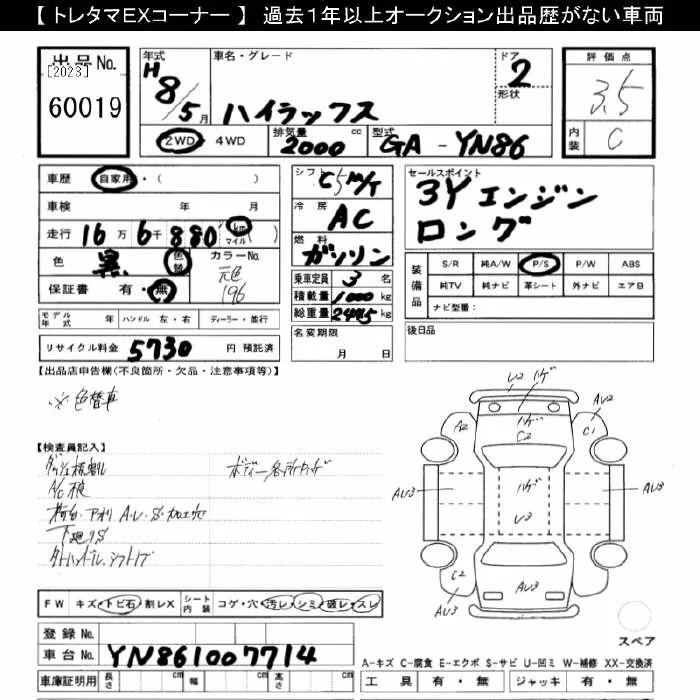 【 トレタマEXコーナー 】 過去1年以上オークション出品歴がない車両
出品No.
[2023]
60019
年式 H8/5月
車名・グレード
ハイラックス
ドア 2
形状
2WD ・ 4WD
排気量 2000 cc
型式 GA-YN86
評価点
3.5
内装 C
車歴 自家用・( )
車検 年 月
走行 16万6千880 km マイル
色 黒 色替
カラーNo.
元色
196
保証書 有・無
モデル年式 年 ハンドル 左・右 ディーラー・並行
リサイクル料金 5730 円 預託済
シフト C5 M/T
冷房 AC
燃料 ガソリン
乗車定員 3 名
積載量 1000 kg
総重量 2495 kg
名変期限
月 日
セールスポイント
3Yエンジン
ロング
装備品
S/R 純A/W P/S P/W ABS
純TV 純ナビ 革シート 外ナビ エアB
ナビ型番:
後日品
【出品店申告欄(不良箇所・欠品・注意事項等)】
※色替車
【検査員記入】
A/C検
下廻りS
ボディー各所
F W キズ・トビ石・割レX
シート内装 コゲ・穴・汚レ・シミ・破レ・スレ
登録No.
車台No. YN861007714
車庫証明用 長さ cm 幅 cm 高さ cm
U2 ハゲ
AU2
A2
ハゲ
C2
C1
AU3
ハゲ
U3
AU3
C2
AU3
AU3
スペア
A-キズ C-腐食 E-エクボ S-サビ U-凹ミ W-補修 XX-交換済
工具 有・無 ジャッキ 有・無